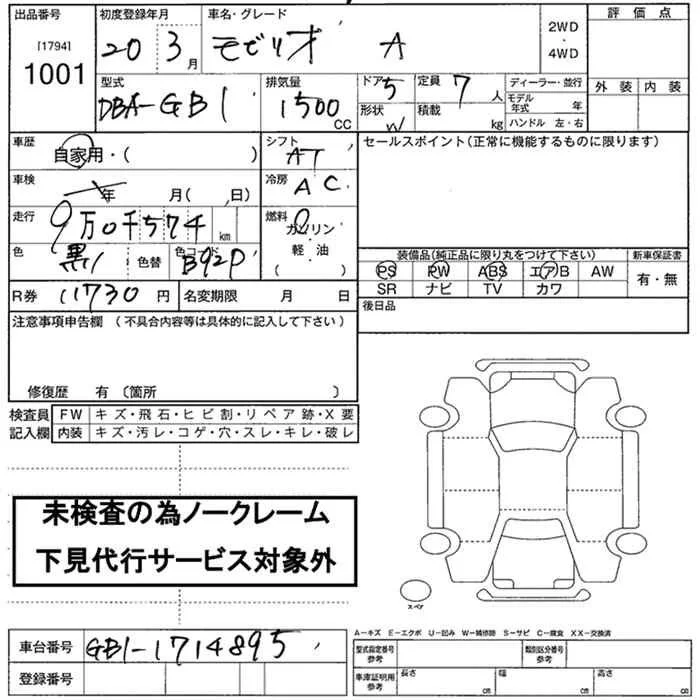 出品番号 初度登録年月 車名・グレード 評価点
[1794] 1001 20 3月 モビリオ A 2WD・4WD
外装 内装
型式 排気量 ドア 定員 ディーラー・並行
DBA-GB1 1500CC 5 7人 モデル年式 年
形状 W 積載 kg ハンドル 左・右
車歴 シフト セールスポイント(正常に機能するものに限ります)
自家用・( ) AT
車検 冷房
年 月( 、日) AC
走行 燃料
9万0千574km ガソリン・軽・油( )
色 黒 色替 色コード B92P
装備品(純正品に限り丸をつけて下さい) 新車保証書
PS PW ABS エアB AW 有・無
SR ナビ TV カワ
R券 11730円 名変期限 月 日
後日品
注意事項申告欄 (不具合内容等は具体的に記入して下さい)
修復歴 有 〔箇所 〕
検査員記入欄 FW キズ・飛石・ヒビ割・リペア跡・X要
内装 キズ・汚レ・コゲ・穴・スレ・キレ・破レ
未検査の為ノークレーム
下見代行サービス対象外
スペア
A―キズ E―エクボ U―凹み W―補修跡 S―サビ C―腐食 XX―交換済
車台番号 GB1-1714895
型式指定番号参考 類別区分番号参考
登録番号
車庫証明用参考 長さ cm 幅 cm 高さ cm